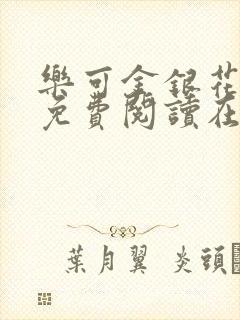 樂可金銀花
免費閱讀在
葉月翼 炎頭